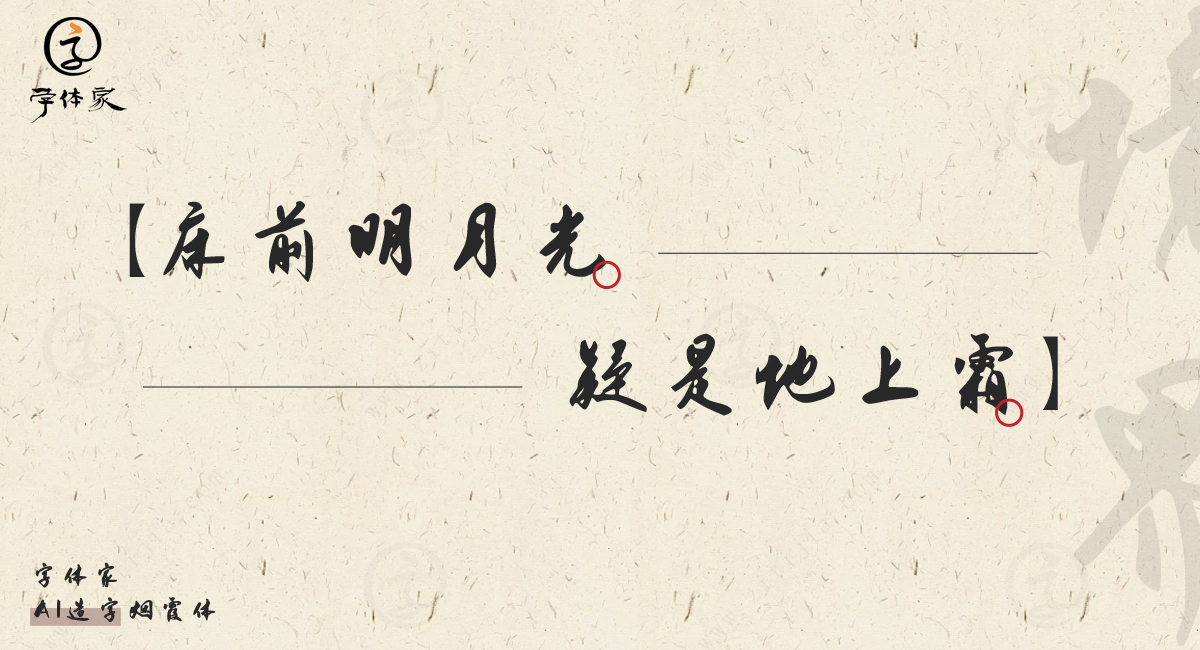 字体家
【床前明月光。
疑是地上霜。】
字体家
AI造字烟霞体